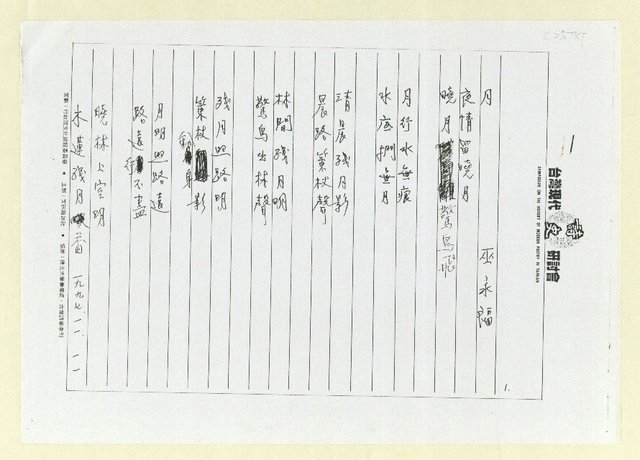 C25TXT
1
台灣現代詩史研討會
SYMPOSIUM ON THE HISTORY OF MODERN POETRY IN TAIWAN
1.
月
巫永福
夜情留曉月
曉月驚鳥飛
月行水無痕
水底撈無月
清晨殘月影
晨路策杖聲
林間殘月明
驚鳥出林聲
殘月照路明
策杖身影
月明照路遠
路遠行不盡
曉林上空明
木蓮殘月香
一九九七、一一、一一